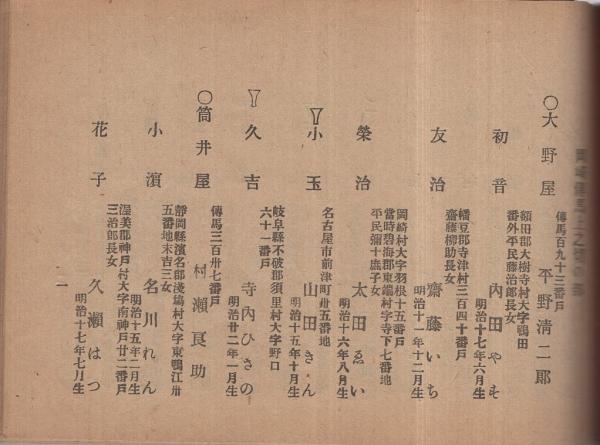 ○大野屋
傳馬百九十三番戸
平野清二郎
初音
額田郡大樹寺村大字鴨田
番外平民藤治郎長女
内田やす
明治十七年六月生
友治
幡豆郡寺津村三百四十番戸
齋藤柳助長女
齋藤いち
明治十一年十二月生
榮治
岡崎村大字羽根十五番戸
當時碧海郡東端村字寺下七番地
平民彌十庶子女
太田ゑい
明治十六年八月生
小玉
名古屋市前津町卅五番地
山田きん
明治十五年十月生
久吉
岐阜縣不破郡須里村大字野口
六十一番戸
寺内ひさの
明治廿二年一月生
○筒井屋
傳馬三百卅七番戸
村瀬良助
小濱
靜岡縣濱名郡淺場村大字東鴨江卅
五番地末吉三女
名川れん
明治十五年二月生
花子
渥美郡神戸村大字南神戸廿二番戸
三治郎長女
久瀬はつ
明治十七年七月生
一